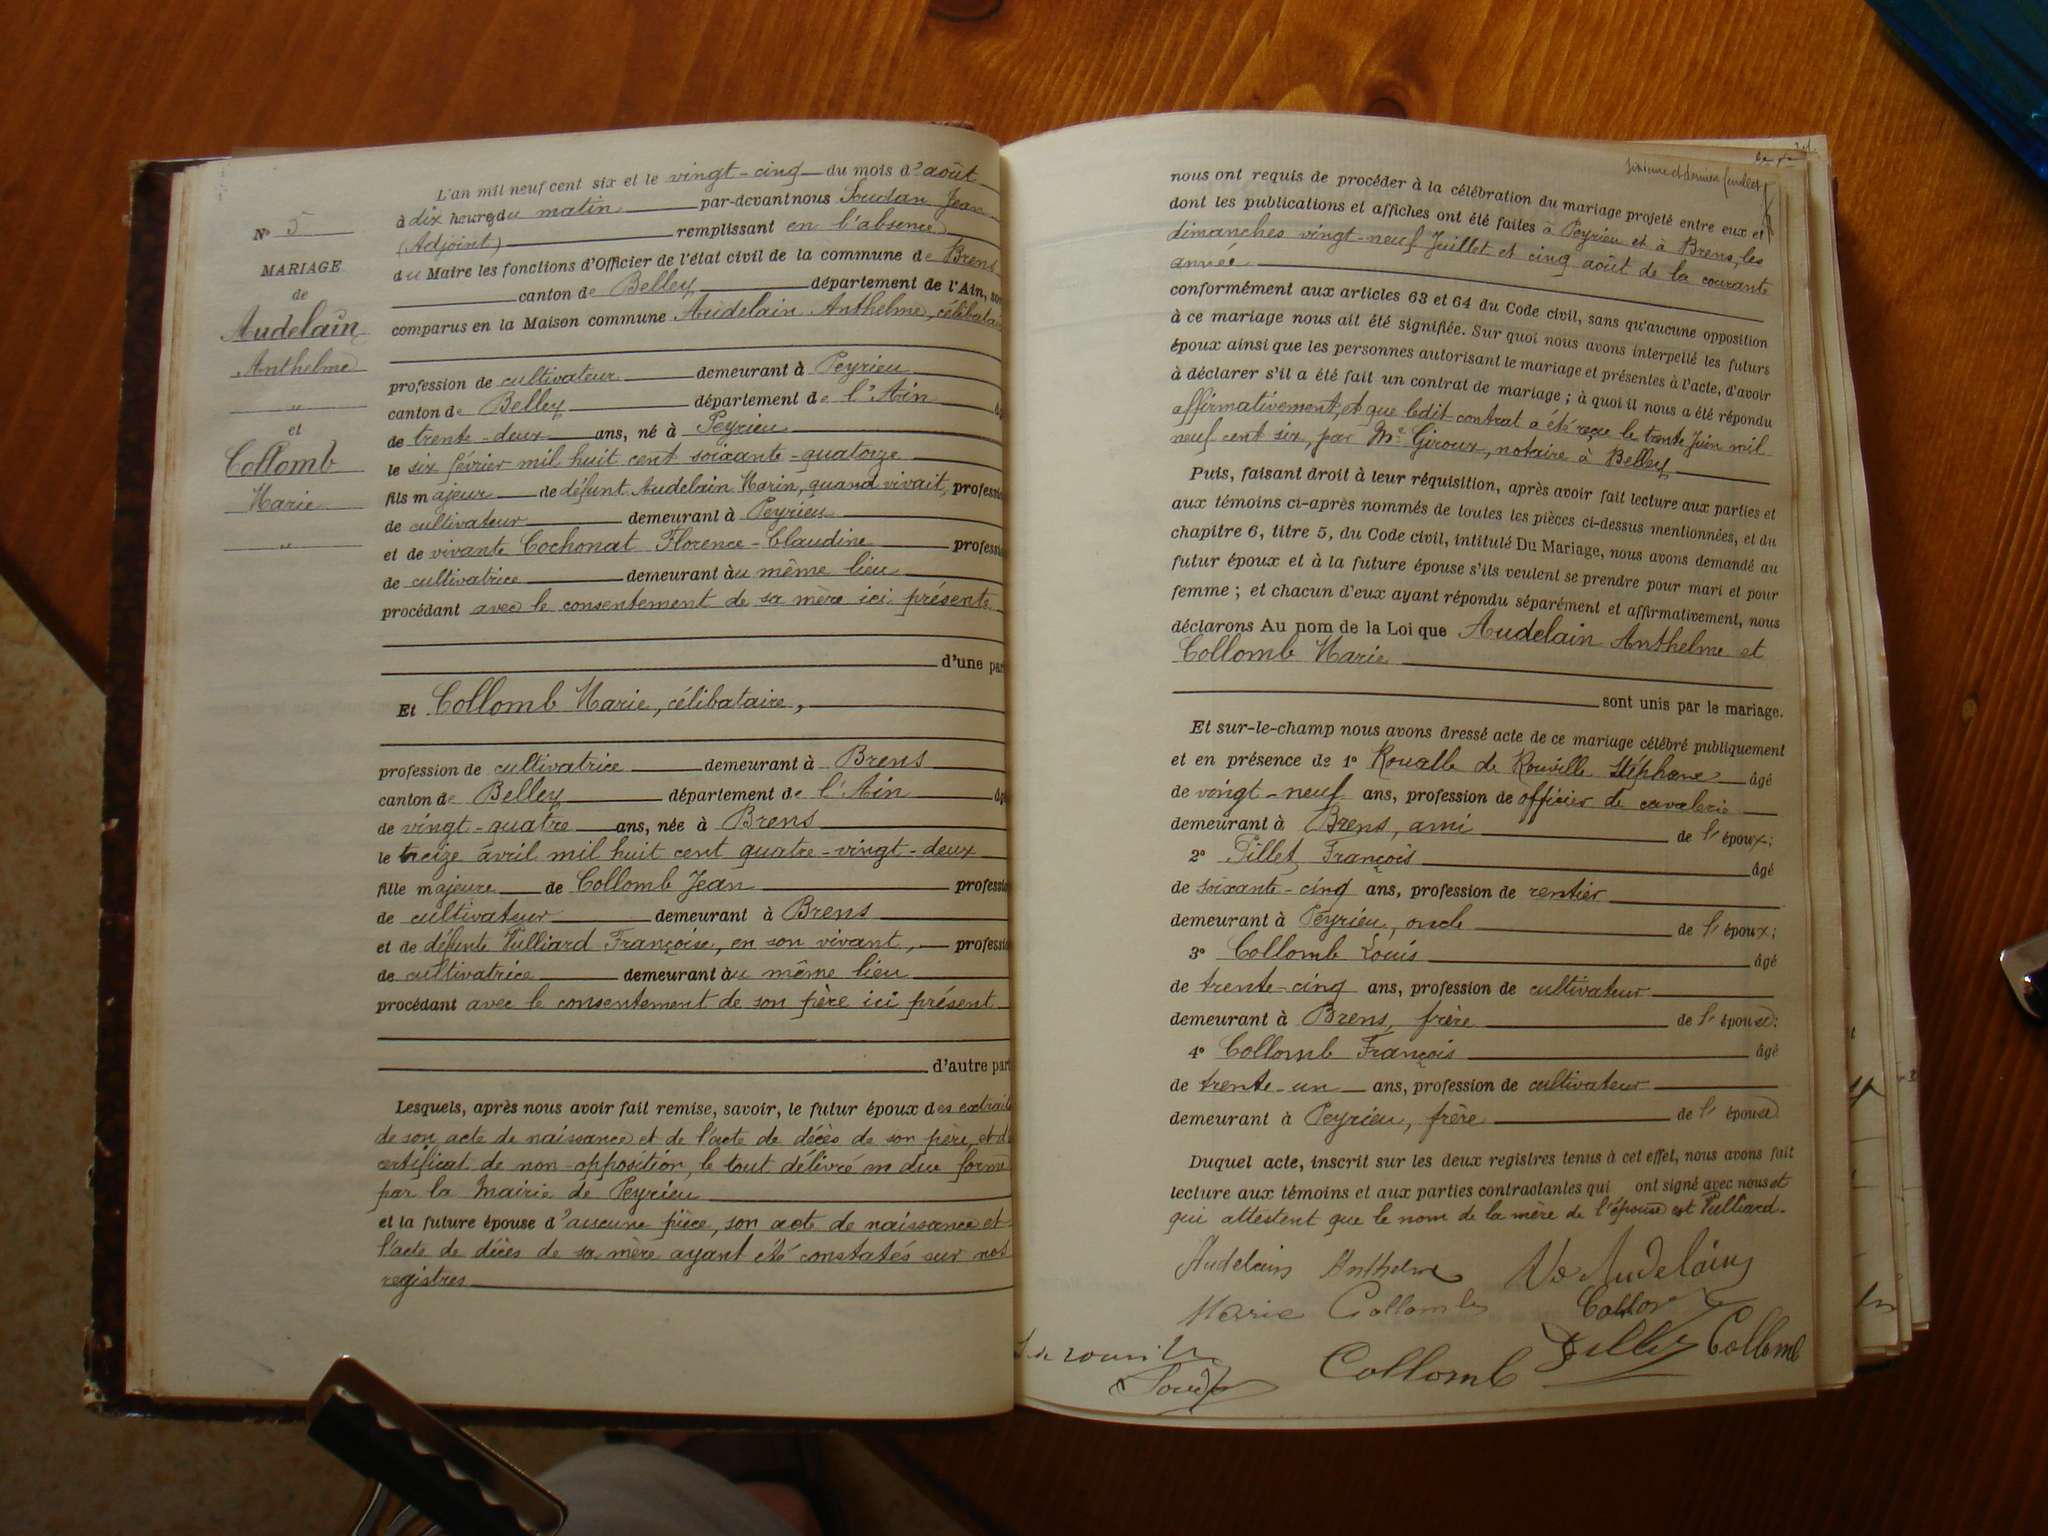 N° 5
MARIAGE
de
Audelain
Anthelme
"
et
Collomb
Marie
"
L'an mil neuf cent six et le vingt-cinq du mois d'août
à dix heures du matin par-devant nous Soudan Jean
(Adjoint) remplissant en l'absence
du Maire les fonctions d'Officier de l'état civil de la commune de Brens
canton de Belley département de l'Ain, sont
comparus en la Maison commune Audelain Anthelme, célibataire
profession de cultivateur demeurant à Peyrieu
canton de Belley département de l'Ain âgé
de trente-deux ans, né à Peyrieu
le six février mil huit cent soixante-quatorze
fils majeur de défunt Audelain Marin, quand vivait, profession
de cultivateur demeurant à Peyrieu
et de vivante Cochonat Florence-Claudine profession
de cultivatrice demeurant au même lieu
procédant avec le consentement de sa mère ici présente
d'une part
Et Collomb Marie, célibataire,
profession de cultivatrice demeurant à Brens
canton de Belley département de l'Ain âgée
de vingt-quatre ans, née à Brens
le treize avril mil huit cent quatre-vingt-deux
fille majeure de Collomb Jean profession
de cultivateur demeurant à Brens
et de défunte Vulliard Françoise, en son vivant, profession
de cultivatrice demeurant au même lieu
procédant avec le consentement de son père ici présent
d'autre part
Lesquels, après nous avoir fait remise, savoir, le futur époux des extraits
de son acte de naissance et de l'acte de décès de son père, et du
certificat de non-opposition, le tout délivré en due forme
par la Mairie de Peyrieu
et la future épouse d'aucune pièce, son acte de naissance et
l'acte de décès de sa mère ayant été constatés sur nos
registres
sixième et dernier feuillet
nous ont requis de procéder à la célébration du mariage projeté entre eux et
dont les publications et affiches ont été faites à Peyrieu et à Brens, les
dimanches vingt-neuf Juillet et cinq août de la courante
année
conformément aux articles 63 et 64 du Code civil, sans qu'aucune opposition
à ce mariage nous ait été signifiée. Sur quoi nous avons interpellé les futurs
époux ainsi que les personnes autorisant le mariage et présentes à l'acte, d'avoir
à déclarer s'il a été fait un contrat de mariage ; à quoi il nous a été répondu
affirmativement, et que ledit contrat a été reçu le trente Juin mil
neuf cent six, par Me Giroux, notaire à Belley
Puis, faisant droit à leur réquisition, après avoir fait lecture aux parties et
aux témoins ci-après nommés de toutes les pièces ci-dessus mentionnées, et du
chapitre 6, titre 5, du Code civil, intitulé Du Mariage, nous avons demandé au
futur époux et à la future épouse s'ils veulent se prendre pour mari et pour
femme ; et chacun d'eux ayant répondu séparément et affirmativement, nous
déclarons Au nom de la Loi que Audelain Anthelme et
Collomb Marie
sont unis par le mariage.
Et sur-le-champ nous avons dressé acte de ce mariage célébré publiquement
et en présence de 1° Roualle de Rouville Stéphane âgé
de vingt-neuf ans, profession de officier de cavalerie
demeurant à Brens, ami de l'époux;
2° Pillet François âgé
de soixante-cinq ans, profession de rentier
demeurant à Peyrieu, oncle de l'époux;
3° Collomb Louis âgé
de trente-cinq ans, profession de cultivateur
demeurant à Brens, frère de l'épouse;
4° Collomb François âgé
de trente-un ans, profession de cultivateur
demeurant à Peyrieu, frère de l'épouse
Duquel acte, inscrit sur les deux registres tenus à cet effet, nous avons fait
lecture aux témoins et aux parties contractantes qui ont signé avec nous et
qui attestent que le nom de la mère de l'épouse est Vulliard.
Audelain Anthelme Ve Audelain
Marie Collomb
S. de rouville Collomb Pillet Collomb